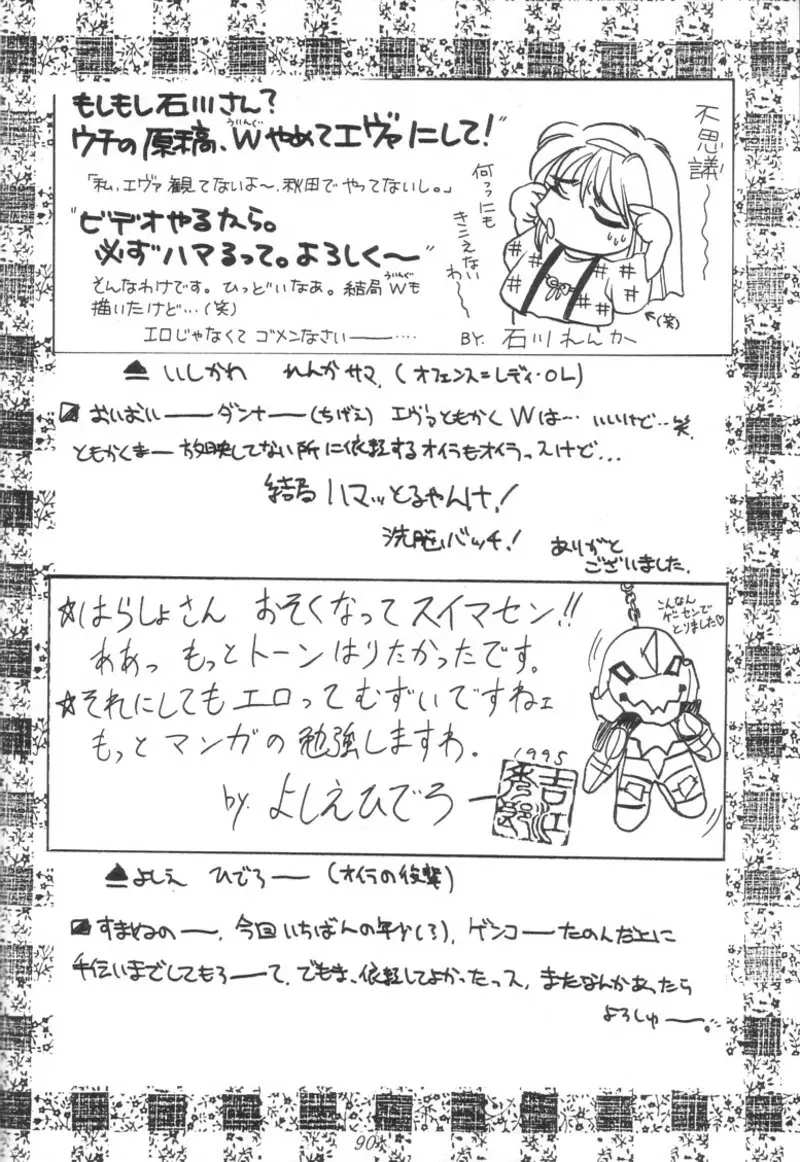 もしもし石川さん?
ウチの原稿、Wやめてエヴァにして!"
ういんぐ
「私、エヴァ観てないよ〜、秋田でやってないし。」
"ビデオやるから。
必ずハマるって。よろしく〜"
そんなわけです。ひっどいなあ。結局Wも
ういんぐ
描いたけど…(笑)
エロじゃなくてゴメンなさい——……
不思議〜〜
何っにも
きこえない
わ〜〜
←(笑)
BY. 石川れんか
▲ いしかわ れんかサマ.(オフェンス=レディ・OL)
おいおい——ダンナ——(ちげえ) エヴァともかくWは… いいけど…笑.
ともかくまー放映してない所に依頼するオイラもオイラっスけど…
結局ハマッとるやんけ!
洗脳バッチ!
ありがと
ございました.
☆はらしょさん おそくなってスイマセン!!
ああっ もっとトーンはりたかったです。
☆それにしてもエロってむずいですねェ
もっとマンガの勉強しますわ.
by. よしえひでろー
1995
こんなん
ゲーセンで
とりました♡
▲よしえ ひでろ——(オイラの後輩)
すまねぇの——. 今回いちばんの年少(?), ゲンコーたのんだ上に
手伝いまでしてもろーて. でもま、依頼してよかったっス. またなんかあったら
よろしゅ——。
90